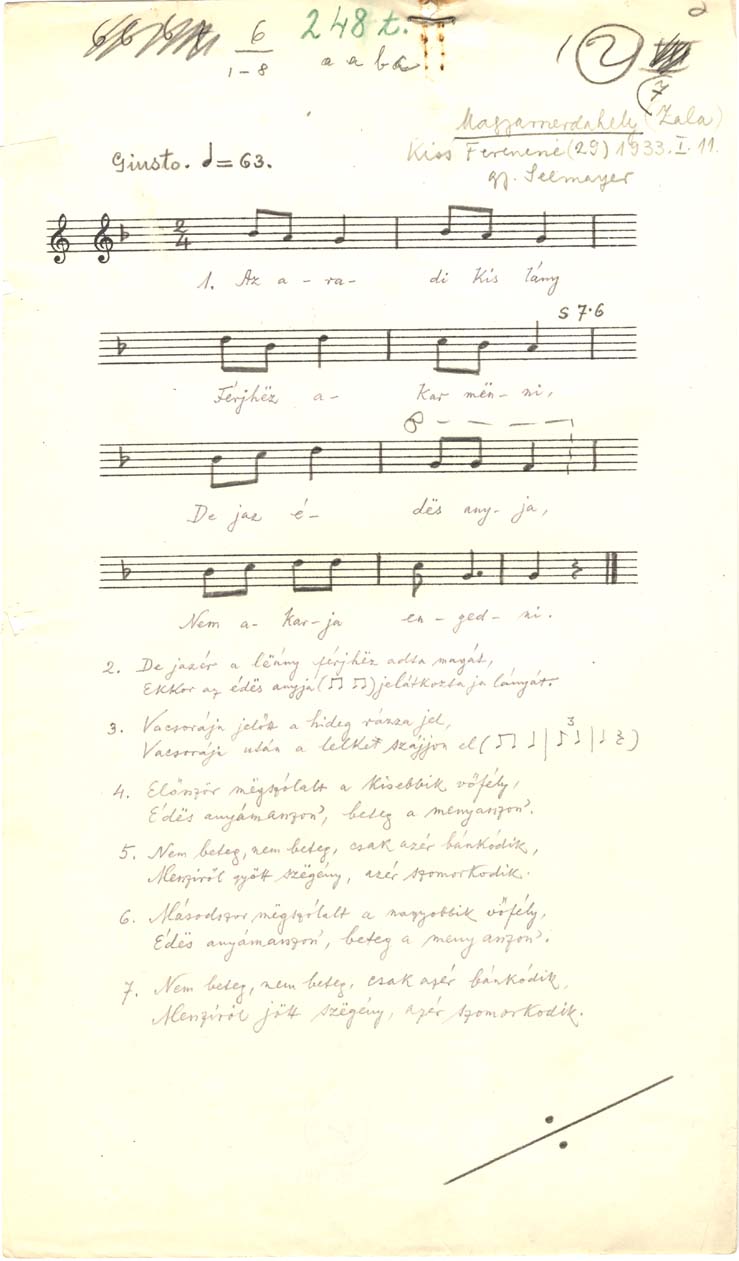 6
1-8
248 t.
a a b c
1 2
7
Magyarszerdahely (Zala)
Kiss Ferencné (29) 1933. I. 11.
gy. Seemayer
Giusto. ♩ = 63.
2
4
1. Az a-ra- di kis lány
S 7·6
Férjhëz a- kar mën- ni,
De jaz é- dës any- ja,
Nem a- kar-ja en- ged- ni.
2. De jazér a lëány férjhëz adta magát,
Ekkor az édës anyjá ( ) jelátkozta ja lányát.
3. Vacsoráju jelőtt a hideg rázza jel,
Vacsoráju után a lelket szájjon el ( 3 )
4. Előnször mëgszólalt a kisebbik vőfély,
Édës anyámasszon', beteg a menyasszon'.
5. Nem beteg, nem beteg, csak azér bánkódik,
Messziről gyött szëgény, azér szomorkodik.
6. Másodszor mëgszólalt a nagyobbik vőfély,
Édës anyámasszon', beteg a menyasszon'.
7. Nem beteg, nem beteg, csak azér bánkódik,
Messziről jött szëgény, azér szomorkodik.